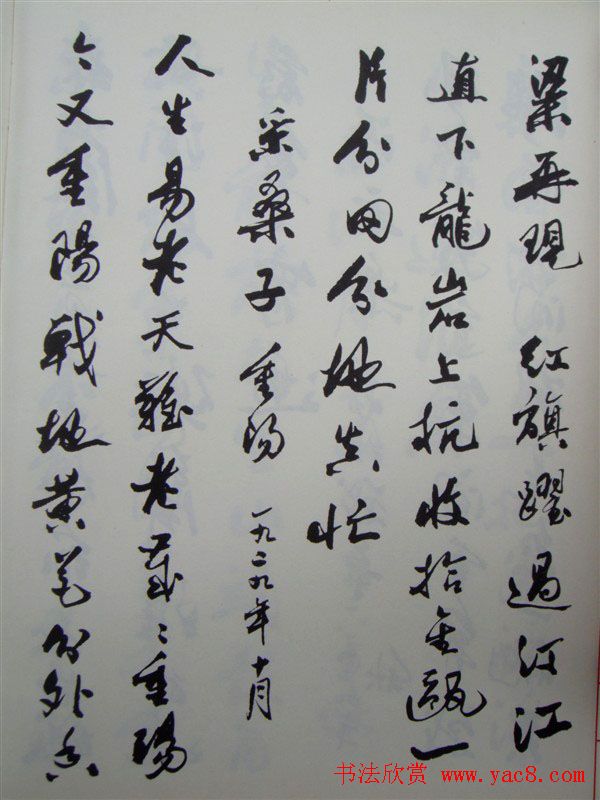 梁再現 红旗躍過汀江
直下龍岩上杭收拾金甌一
片分田分地真忙
采桑子 重陽 一九二九年十月
人生易老天難老歲〻重陽
今又重陽戰地黄花分外香
书法欣赏 www.yac8.com